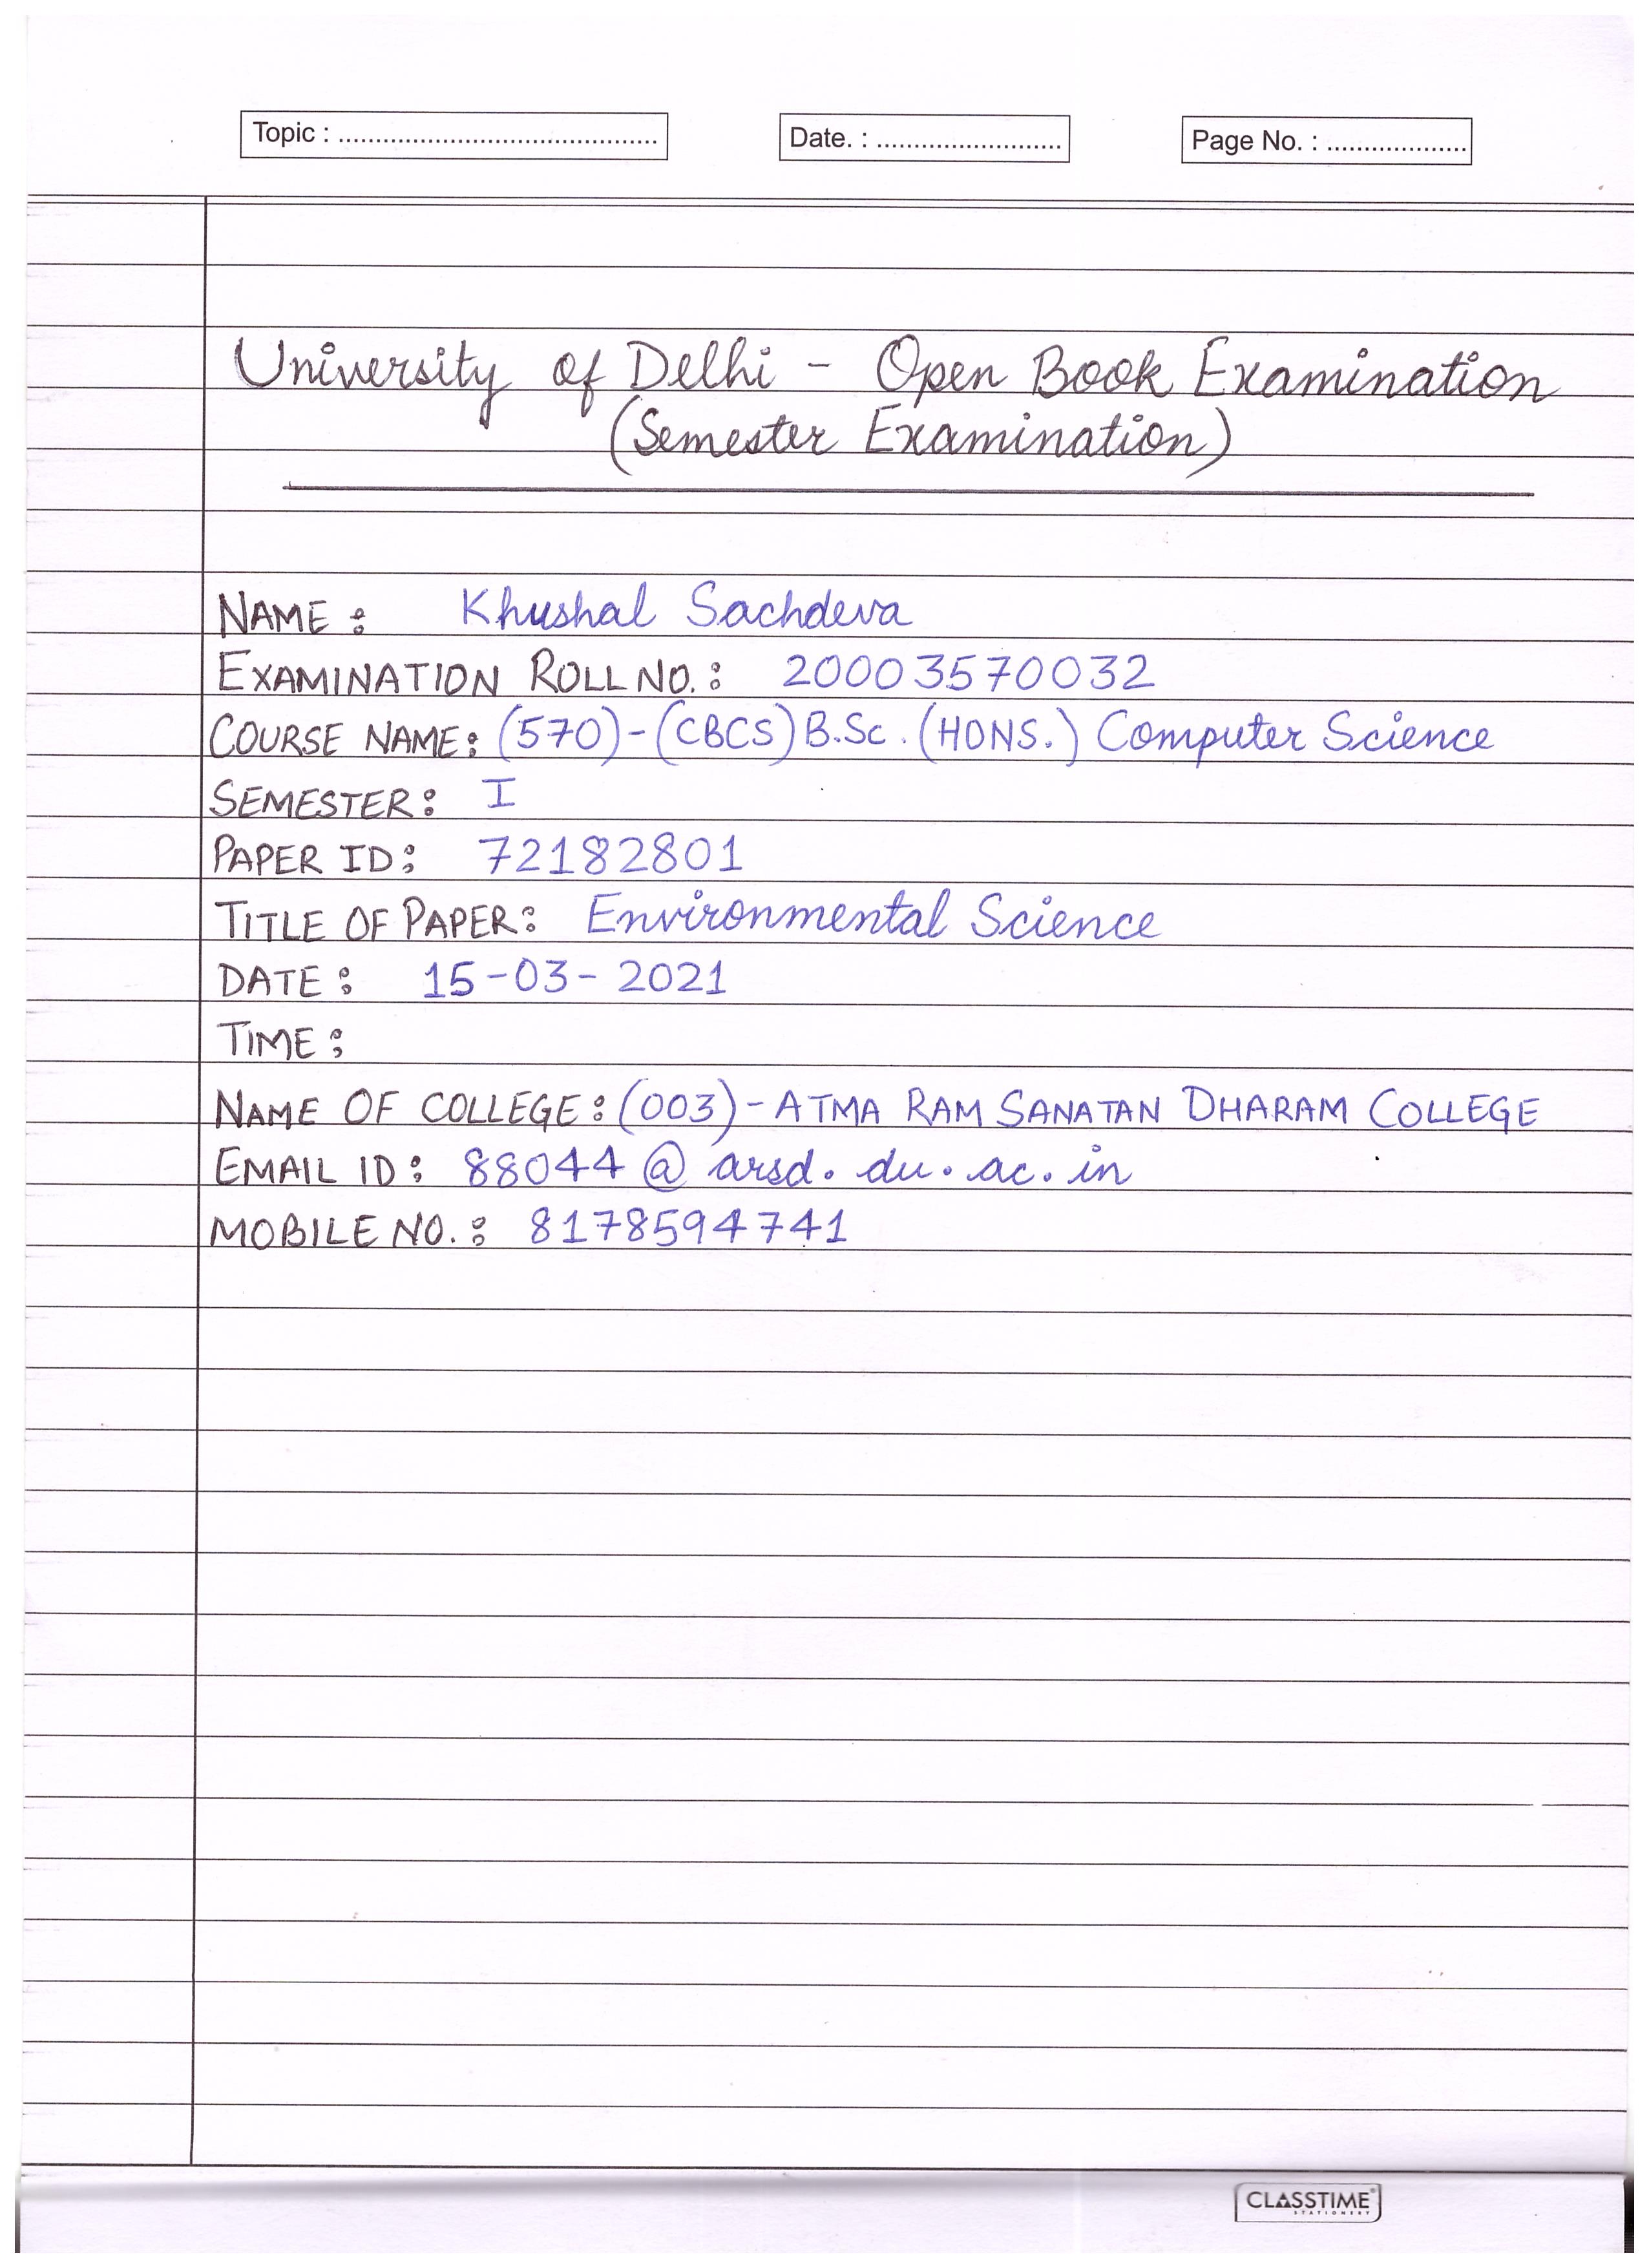 Topic : ...........................................
Date. : .........................
Page No. : ...................
University of Delhi - Open Book Examination
(Semester Examination)
NAME : Khushal Sachdeva
EXAMINATION ROLL NO. : 20003570032
COURSE NAME: (570)-(CBCS) B.Sc. (HONS.) Computer Science
SEMESTER: I
PAPER ID: 72182801
TITLE OF PAPER: Environmental Science
DATE : 15-03-2021
TIME :
NAME OF COLLEGE: (003)-ATMA RAM SANATAN DHARAM COLLEGE
EMAIL ID: 88044@arsd.du.ac.in
MOBILE NO. : 8178594741
CLASSTIME
STATIONERY